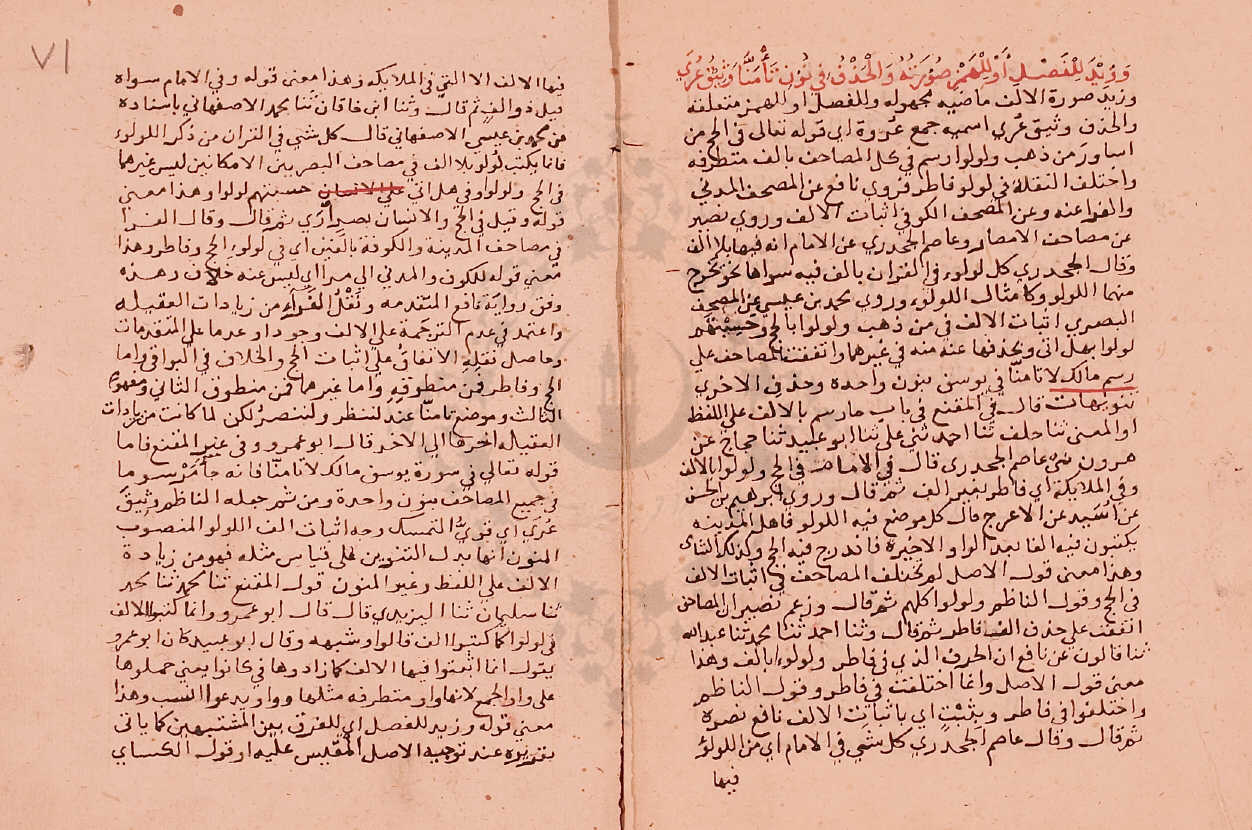 وزيد للفصل أو للهمز صورته والحذف في نون تأمنا وثيق عري
وزيد صورة الالف ماضيه مجهوله وللفصل او للهمز متعلقه
والحذف وثيق عري اسميه جمع عروة اي قوله تعالى في الحج من
اساور من ذهب ولولوا رسم في كل المصاحف بالف متطرفه
واختلف النقلة في لولو فاطر فروي نافع عن المصحف المدني
والفراء عنه وعن المصحف الكوفي اثبات الالف وروي نصير
عن مصاحف الامصار وعاصم الجحدري عن الامام انه فيها بلا الف
وقال الجحدري كل لولوء في القران بالف فيه سواها نحو يخرج
منهما اللولو وكامثال اللولوء وروي محمد بن عيسي عن المصحف
البصري اثبات الالف في من ذهب ولولوا بالحج وحسبتهم
لولوا بهل اتى وبحذفها عنه منه في غيرهما واتفقت المصاحف علي
رسم مالك لا تامنا في يوسف بنون واحده وحذف الاخري
تنويهات قال في المقنع في باب ما رسم بالالف علي اللفظ
او المعنى ثنا خلف ثنا احمد ثنا علي ثنا ابو عبيد ثنا حجاج عن
هرون عن عاصم الجحدري قال في الامام في الحج ولولوا بالالف
وفي الملايكة اي فاطر بغير الف ثم قال وروي ابرهيم بن الحسن
عن اسيد عن الاعرج قال كل موضع فيه اللولو فاهل المدينه
يكتبون فيه الفا بعد الواو الاخيرة فاندرج فيه الحج وكذلك الثاني
وهذا معنى قول الاصل لم تختلف المصاحف في اثبات الالف
في الحج وقول الناظم ولولوا كلهم ثم قال وزعم نصير ان المصاحف
اتفقت علي حذف الف فاطر ثم قال وثنا احمد ثنا محمد ثنا عبد الله
ثنا قالون عن نافع ان الحرف الذي في فاطر ولولوءا بالف وهذا
معنى قول الاصل وانما اختلفت في فاطر وقول الناظم
واختلفوا في فاطر وبثبت اي باثبات الالف نافع نصره
ثم قال وقال عاصم الجحدري كل شي في الامام اي من اللولؤ
فيها
٧١
فيها الالف الا التي في الملايكه وهذا معنى قوله وفي الامام سواه
قيل ذو الف ثم قال وثنا ابن خاقان ثنا محمد الاصفهاني باسناده
عن محمد بن عيسي الاصفهاني قال كل شي في القران من ذكر اللولوء
فانما يكتب لولو بلا الف في مصاحف البصريين الا مكانين ليس غيرهما
في الحج ولولوا وفي هل اتي علي الانسان حسبتهم لولوا وهذا معنى
قوله وقيل في الحج والانسان بصير أري ثم قال وقال الفرا
في مصاحف المدينه والكوفة بالفين اي في لولوء الحج وفاطر وهذا
معني قوله للكوف والمدني الي مرا اي ليس عنه خلاف وهذه
وفق رواية نافع المتقدمه ونقل الفراء من زيادات العقيله
واعتمد في عدم الترجمة علي الالف وجودا وعدما علي المتقدمات
وحاصل نقله الاتفاق علي اثبات الحج والخلاف في البواقي واما
الحج وفاطر فمن منطوقه واما غيرهما فمن منطوق الثاني ومفهوم
الثالث وموضع تامنا عند لننظر ولننصر لكن لما كانت من زيادات
العقيله اخرها الي الاخر قال ابو عمرو وفي غير المقنع فاما
قوله تعالي في سورة يوسف مالك لا تامنا فانه جا مرسوما
في جميع المصاحف بنون واحدة ومن ثم جعله الناظم وثيق
عري اي قوي التمسك وجه اثبات الف اللولو المنصوب
المنون انها بدل التنوين علي قياس مثله فهو من زيادة
الالف علي اللفظ وغير المنون قول المقنع ثنا محمد ثنا محمد
ثنا سليمان ثنا اليزيدي قال قال ابو عمرو وانما كتبوا الالف
في لولوا كما كتبوا الف قالوا وشبهه وقال ابو عبيد كان ابو عمرو
يقول انما اثبتوا فيها الالف كما زادوها في كانوا يعني حملوها
علي واو الجمع لانها واو متطرفه مثلها وواو يدعوا النسب وهذا
معني قوله وزيد للفصل اي للفرق بين المشتبهين كما ياتي
تقريره عند توجيه الاصل المقيس عليه او قول الكساي